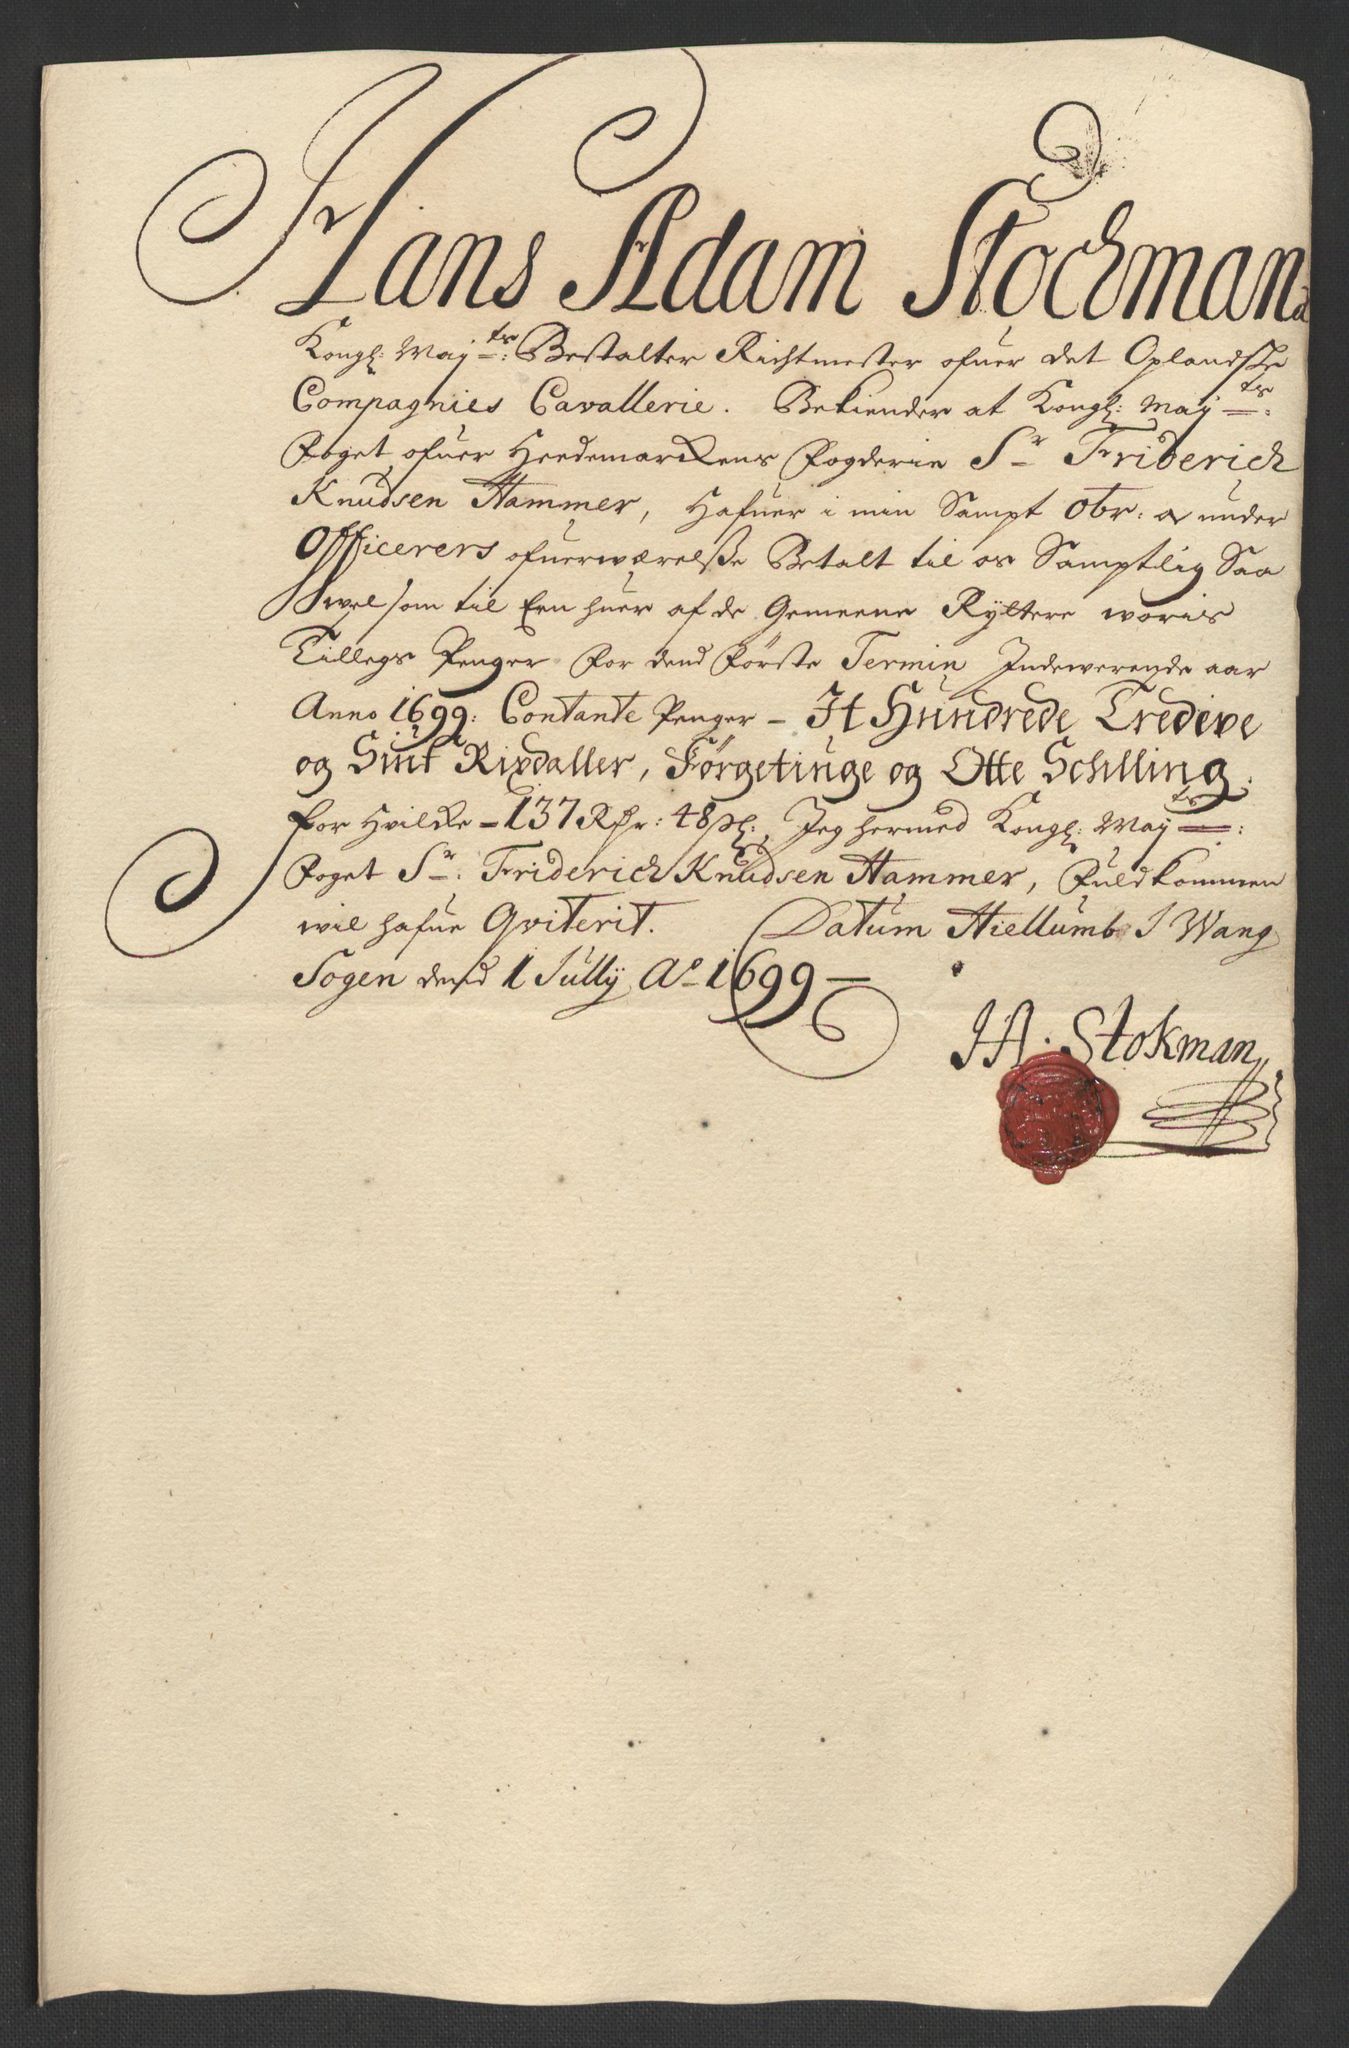 Hans Adam Stockmand
Kongl: May:ts Bestalter Richtmester ofuer det Oplandske
Compagnies Cavallerie. Bekiender at Kongl: May:ts
Foget ofuer Heedemarkens Fogderie Sr Friderich
Knudsen Hammer, Hafuer i min Sampt Obr: og under
Officerers ofuerwærelsse Betalt til os Samptlig Saa
wel som til Een huer af de Gemeene Ryttere woris
Tillegs Penger for dend første Termin Indewerende aar
Anno 1699: Contante Penger - It Hundrede Tredive
og Siuf Rixdaller, Førgetiuge og Otte Schilling
for Hvilke - 137 Rdr: 48 sl:, Jeg hermed Kongl: May:ts
Foget Sr. Friderich Knudsen Hammer, Fuldkommen
wil hafue Qviterit. Datum Hiellumb I Wang
Sogen dend 1 Jully Ao 1699 -
HA. Stokman